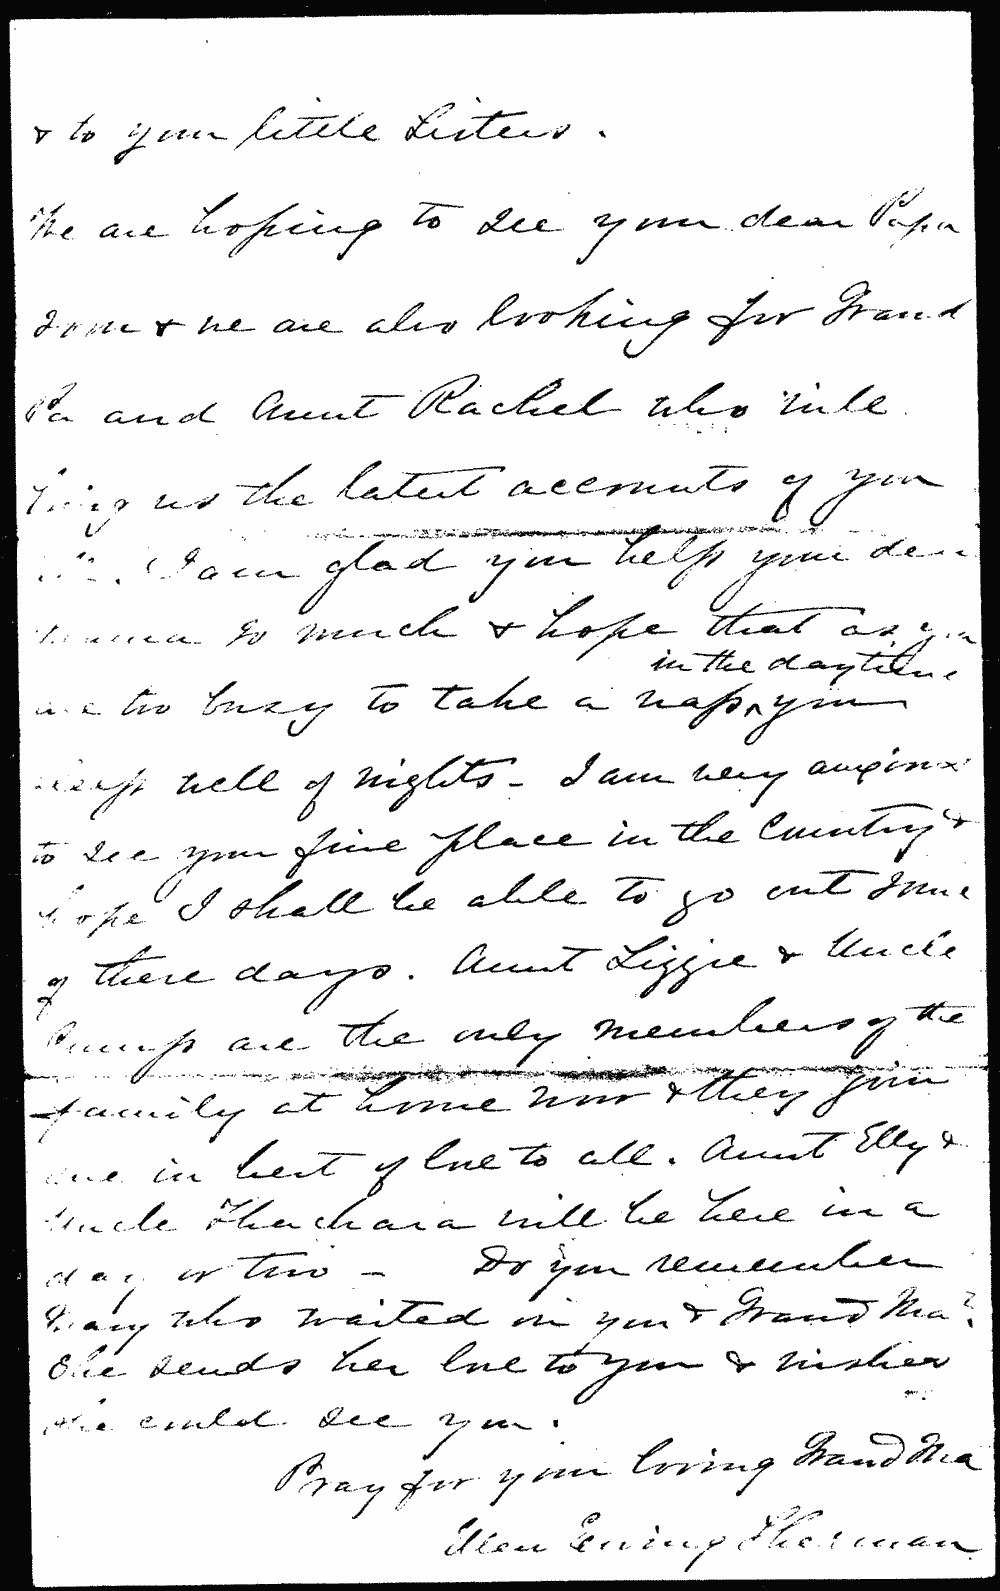 & to your little Sisters.
We are hoping to see your dear Papa
soon & we are also looking for Grand
Pa and Aunt Rachel who will
bring us the latest accounts of you
all. I am glad you help your dear
Mama so much & hope that as you
in the daytime
are too busy to take a nap, you
sleep well of nights - I am very anxious
to see your fine place in the Country &
hope I shall be able to go out some
of these days. Aunt Lizzie & Uncle
Cump are the only members of the
family at home now & they join
me in best of love to all. Aunt Elly &
Uncle Thackara will be here in a
day or two - Do you remember
Mary who waited on you & Grand Ma?
She sends her love to you & wishes
she could see you.
Pray for your loving Grand Ma
Ellen Ewing Sherman